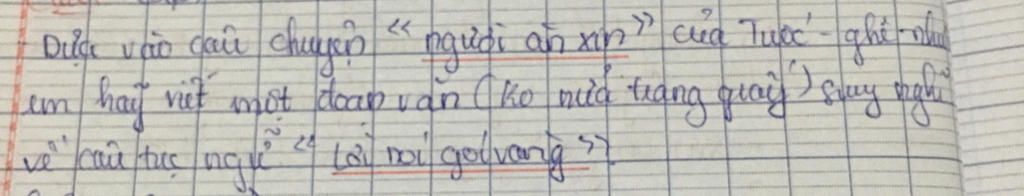 Dựa vào câu chuyện "người ăn xin" của Tuốc-ghê-nhép
em hãy viết một đoạn văn (Ko nửa trang giấy) suy nghĩ
về câu tục ngữ "Lời nói gói vàng"